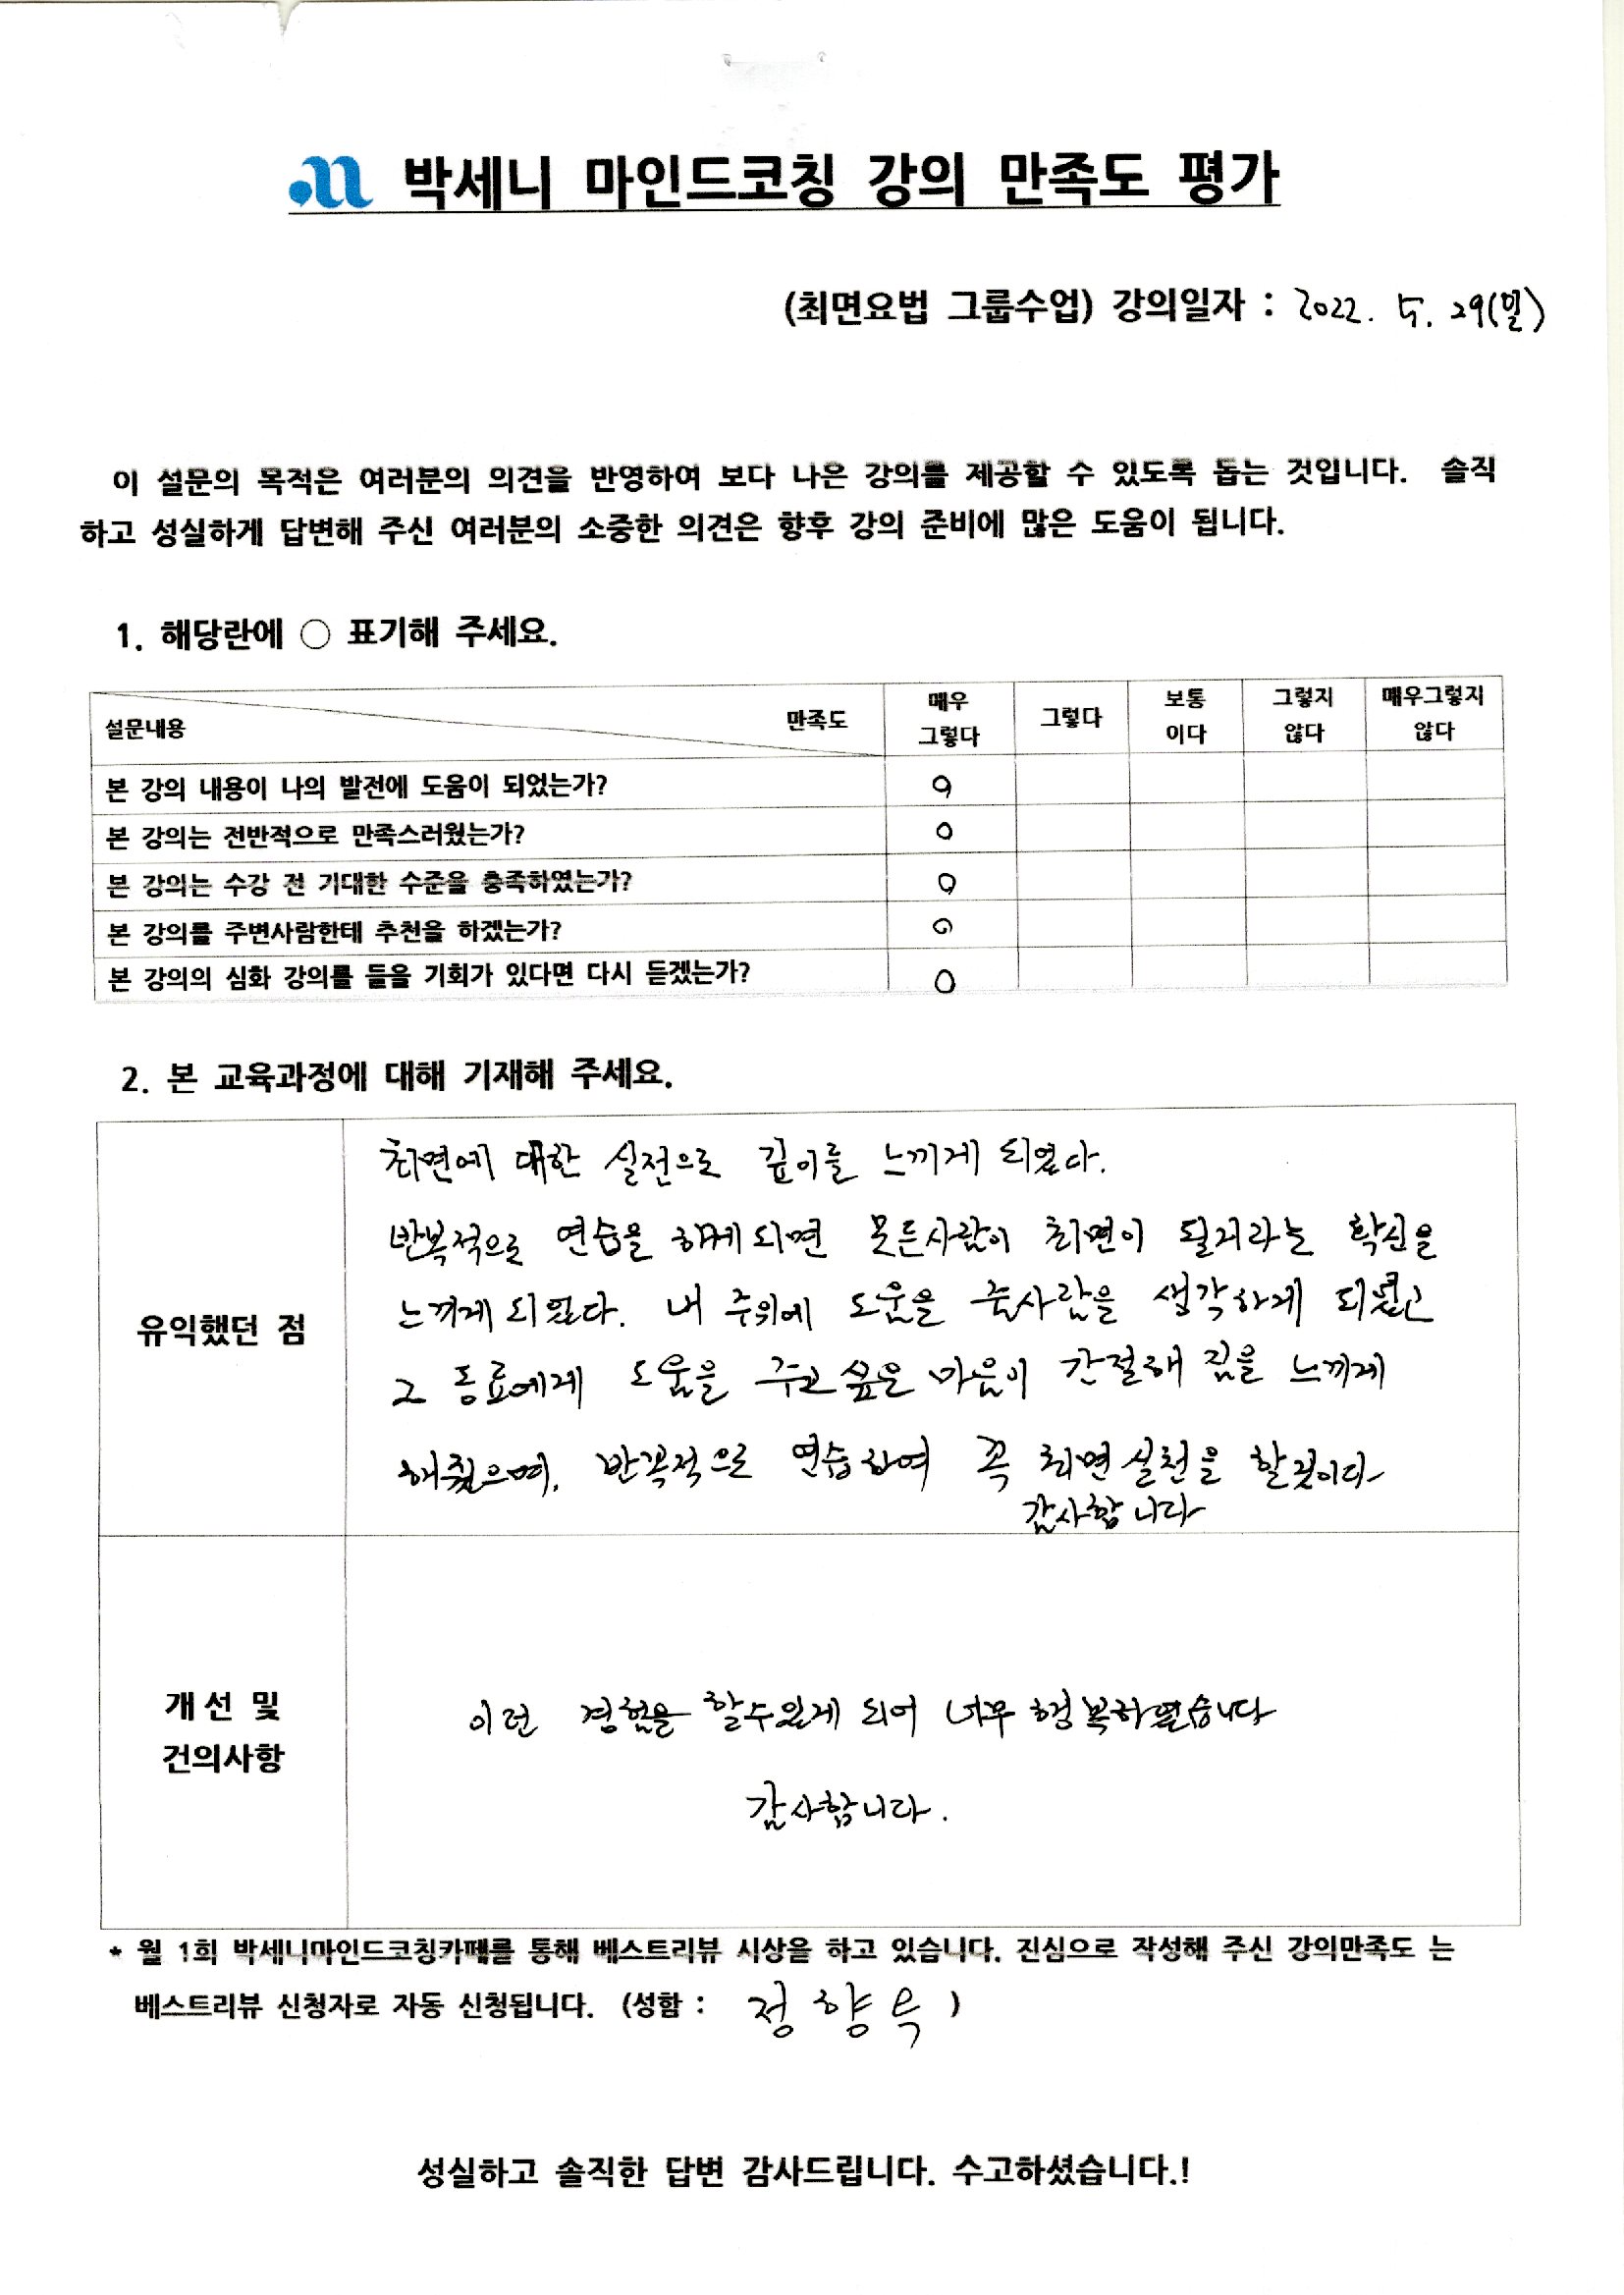 박세니 마인드코칭 강의 만족도 평가
(최면요법 그룹수업) 강의일자 : 2022. 5. 29(일)
이 설문의 목적은 여러분의 의견을 반영하여 보다 나은 강의를 제공할 수 있도록 돕는 것입니다. 솔직
하고 성실하게 답변해 주신 여러분의 소중한 의견은 향후 강의 준비에 많은 도움이 됩니다.
1. 해당란에 ○ 표기해 주세요.
설문내용 만족도 매우 그렇다 그렇다 보통 이다 그렇지 않다 매우그렇지 않다
본 강의 내용이 나의 발전에 도움이 되었는가? ○
본 강의는 전반적으로 만족스러웠는가? ○
본 강의는 수강 전 기대한 수준을 충족하였는가? ○
본 강의를 주변사람한테 추천을 하겠는가? ○
본 강의의 심화 강의를 들을 기회가 있다면 다시 듣겠는가? ○
2. 본 교육과정에 대해 기재해 주세요.
유익했던 점
최면에 대한 실전으로 깊이를 느끼게 되었다.
반복적으로 연습을 하게되면 모든사람이 최면이 될거라는 확신을
느끼게 되었다. 내 주위에 도움을 줄사람을 생각하게 되었고
그 동료에게 도움을 주고 싶은 마음이 간절해 짐을 느끼게
해줬으며, 반복적으로 연습하여 꼭 최면실천을 할것이다
감사합니다
개선 및
건의사항
이런 경험을 할수있게 되어 너무 행복하였습니다
감사합니다.
* 월 1회 박세니마인드코칭카페를 통해 베스트리뷰 시상을 하고 있습니다. 진심으로 작성해 주신 강의만족도 는
베스트리뷰 신청자로 자동 신청됩니다. (성함 : 정향 )
성실하고 솔직한 답변 감사드립니다. 수고하셨습니다.!